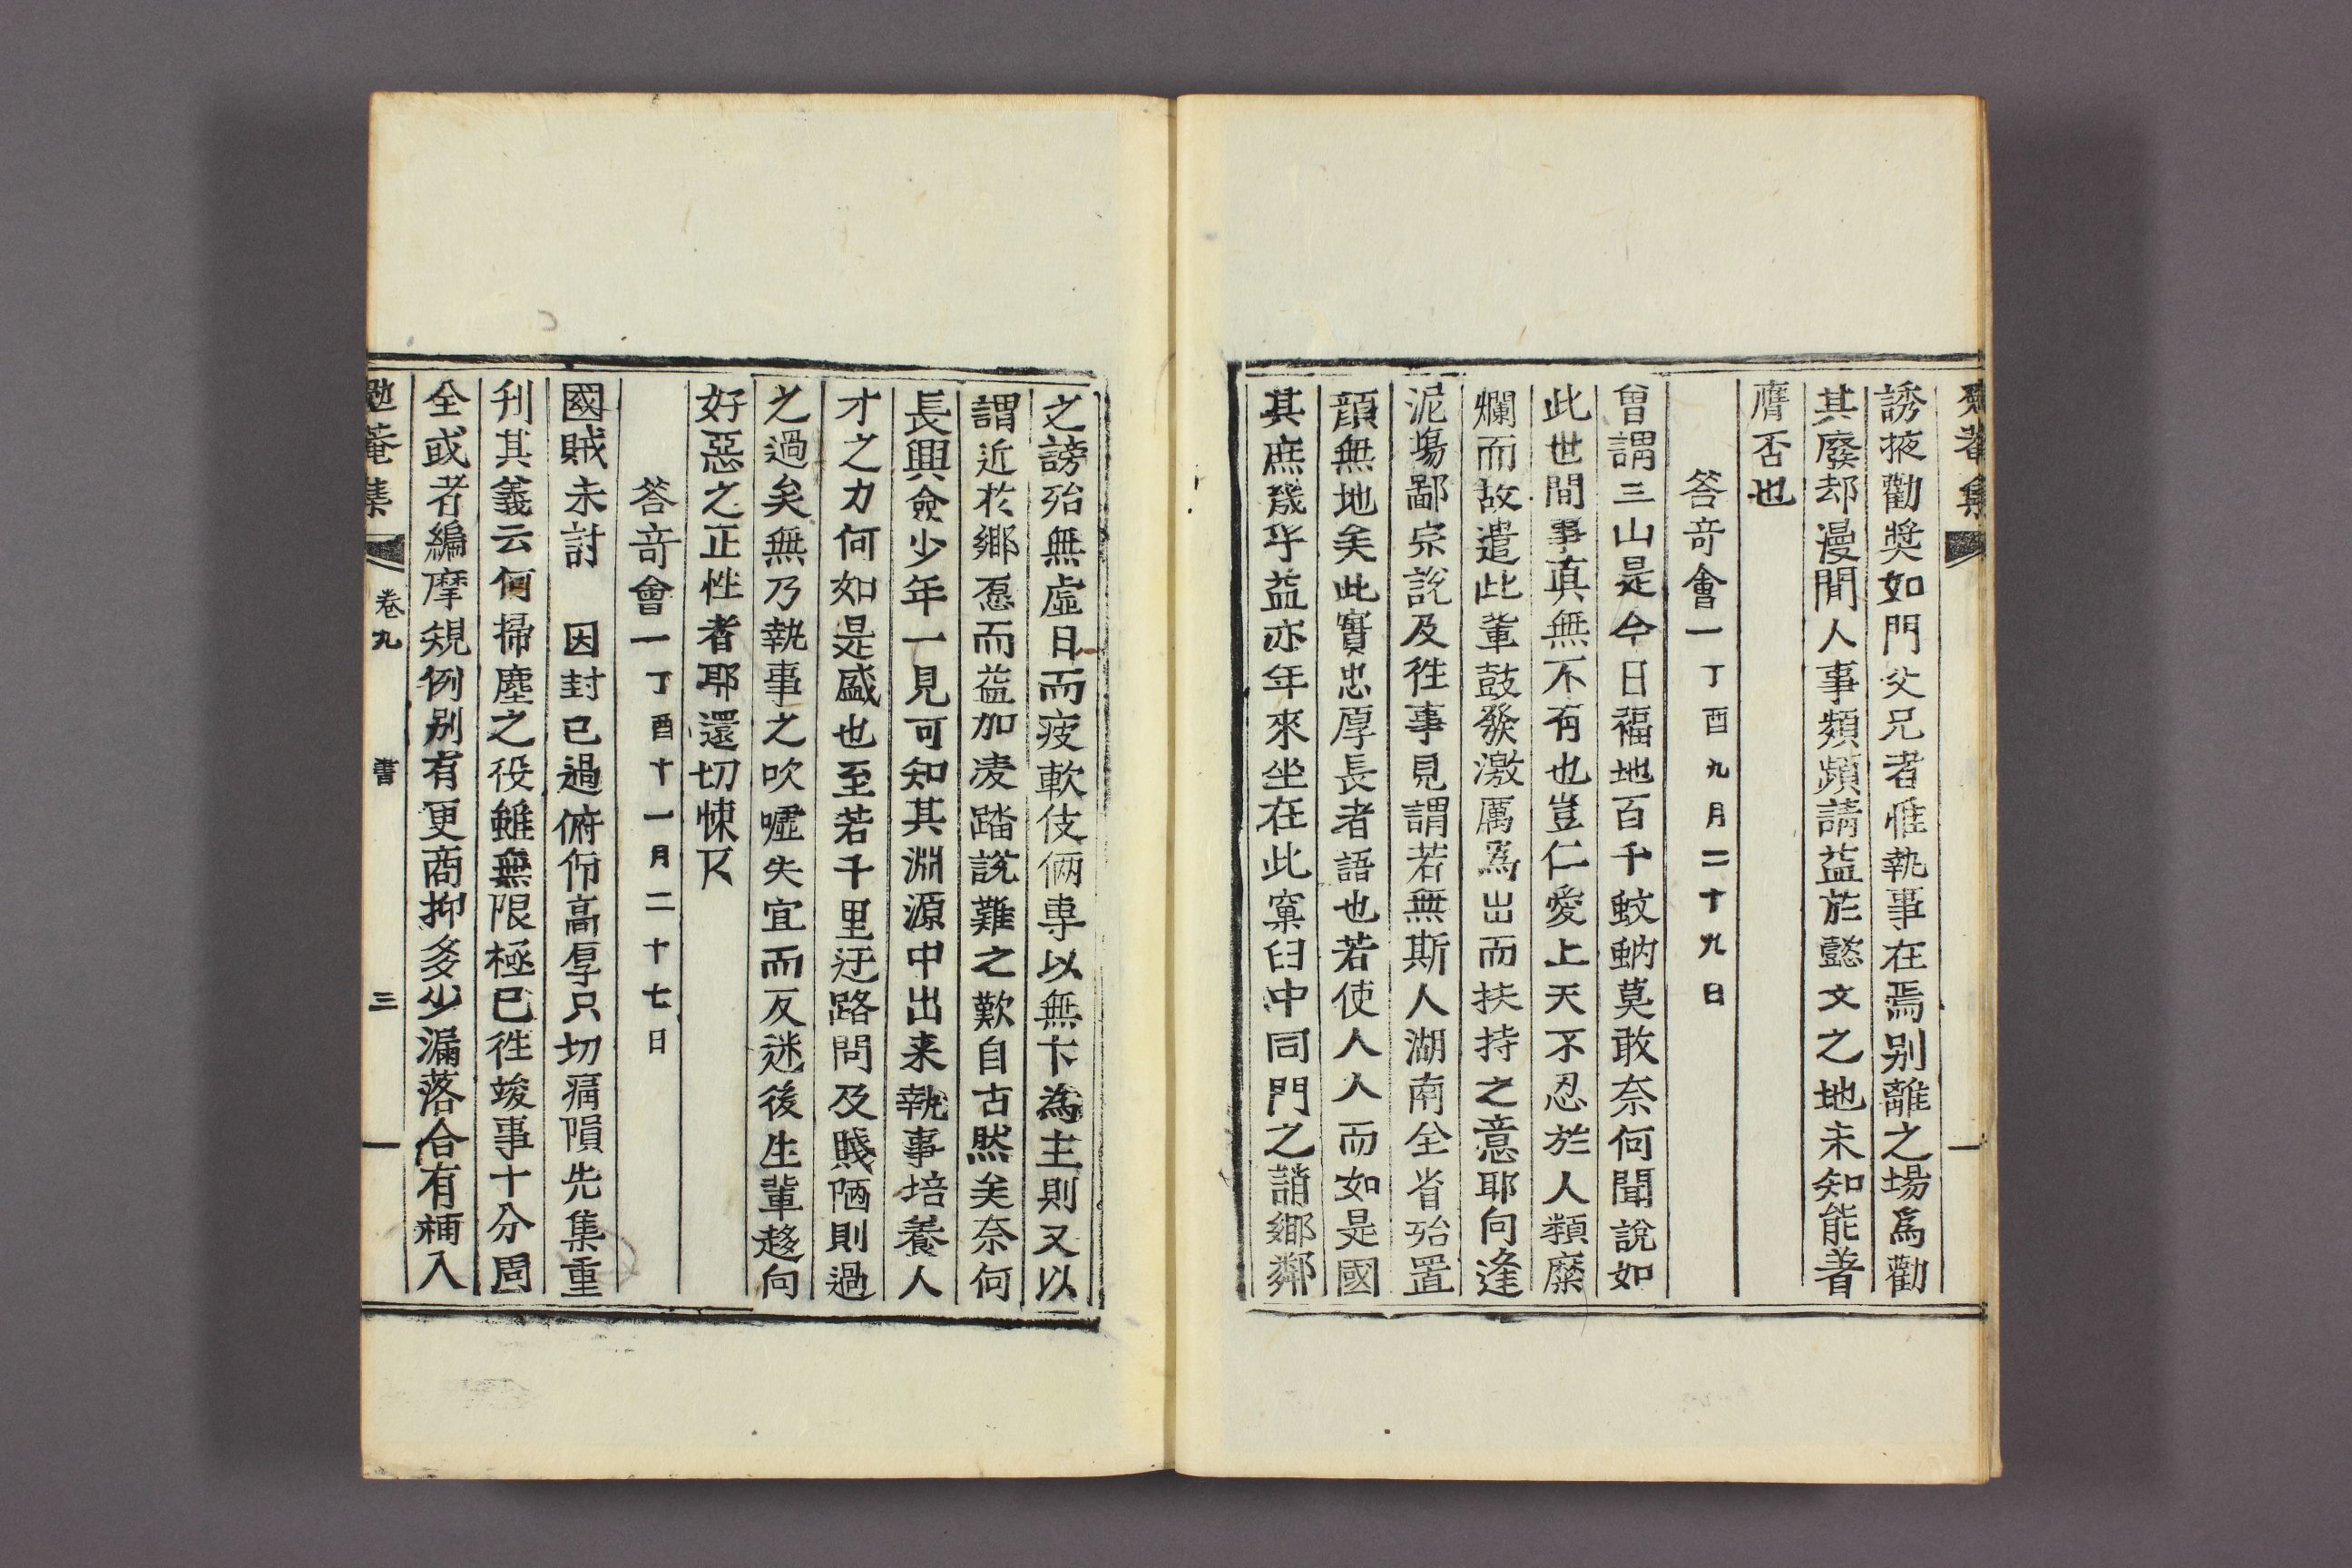 誘掖勸奬如門父兄者惟執事在焉别離之場爲勸
其廢却漫閒人事頻蘋請益於懿文之地未知能着
膺否也
答竒會一丁酉九月二十九日
曾謂三山是今日福地百千蚊蚋莫敢奈何聞說如
此世間事真無不有也豈仁愛上天不忍於人類糜
爛而故遣此軰鼓發激厲爲出而扶持之意耶向逢
泥塲鄙宗說及徃事見謂若無斯人湖南全省殆置
顔無地矣此實忠厚長者語也若使人人而如是國
其庶幾乎益亦年來坐在此窠臼中同門之誚鄉鄰
之謗殆無虛日而疲軟伎倆專以無卞爲主則又以
謂近於鄉愿而益加凌踏說難之歎自古然矣奈何
長興僉少年一見可知其淵源中出来執事培養人
才之力何如是盛也至若千里迂路問及賤陋則過
之過矣無乃執事之吹噓失宜而反迷後生軰趍向
好惡之正性者耶還切悚仄
答竒會一丁酉十一月二十七日
國賊未討 因封已過俯仰高厚只切痛隕先集重
刋其義云何掃塵之役雖無限極已徃竣事十分周
全或者編摩䂓例别有更商抑多少漏落合有補入
勉菴集 卷九 書 三